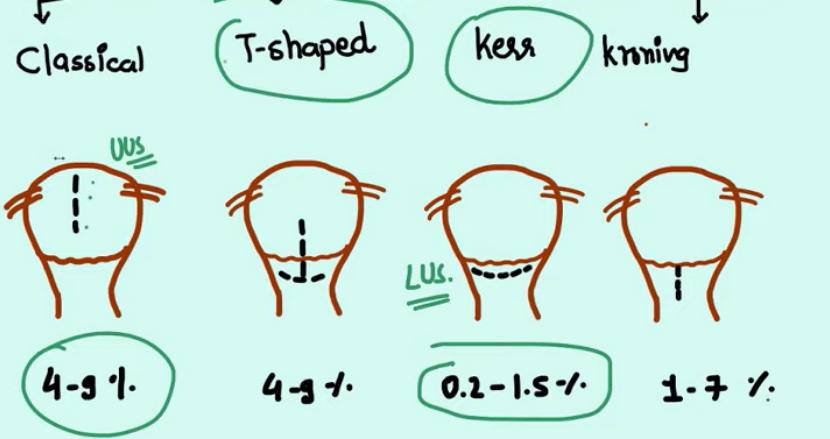 Classical T-shaped Kerr kroning
UUS
LUS.
4-9 %. 4-9 %. 0.2-1.5 %. 1-7 %.